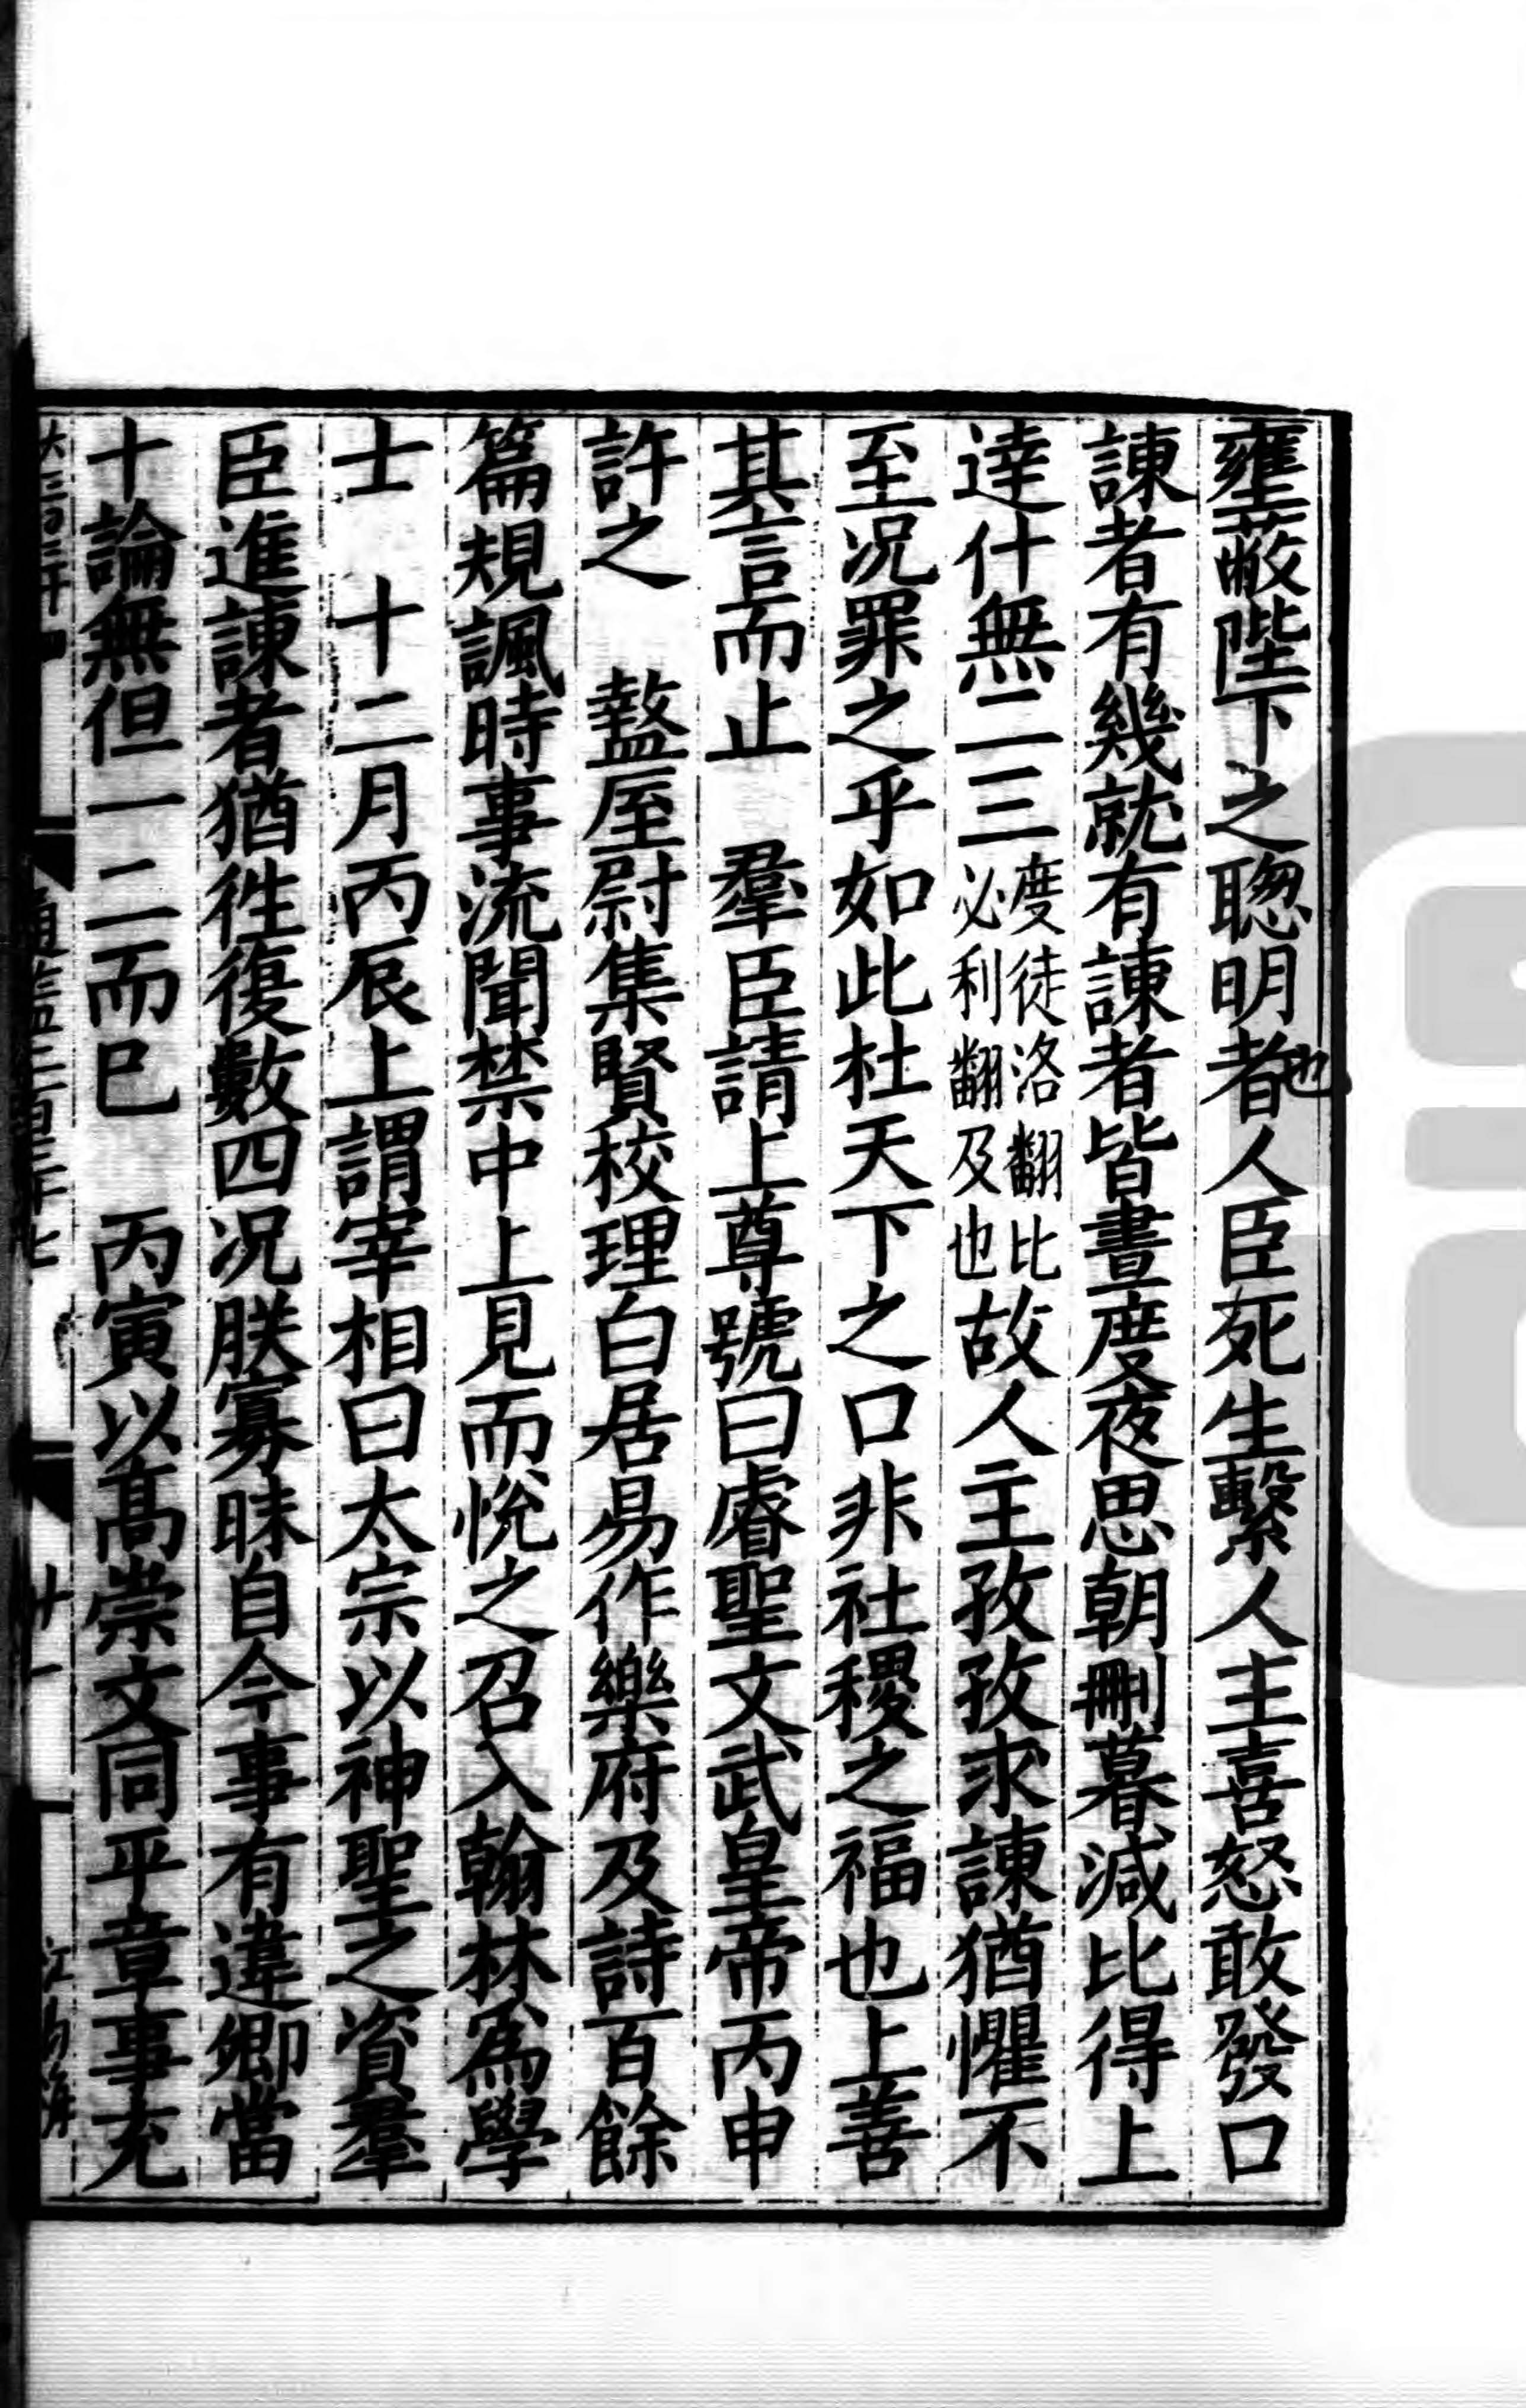 壅蔽陛下之聦明者也人臣死生繫人主喜怒敢發口
諫者有幾就有諫者皆晝度夜思朝刪暮減比得上
達什無二三度徒洛翻比必利翻及也故人主孜孜求諫猶懼不
至況罪之乎如此杜天下之口非社稷之福也上善
其言而止　羣臣請上尊號曰睿聖文武皇帝丙申
許之　盩厔尉集賢校理白居易作樂府及詩百餘
篇規諷時事流聞禁中上見而悅之召入翰林爲學
士　十二月丙辰上謂宰相曰太宗以神聖之資羣
臣進諫者猶徃復數四況朕寡昧自今事有違卿當
十論無但一二而巳　丙寅以髙崇文同平章事充
通鑑二百三十七
廿一